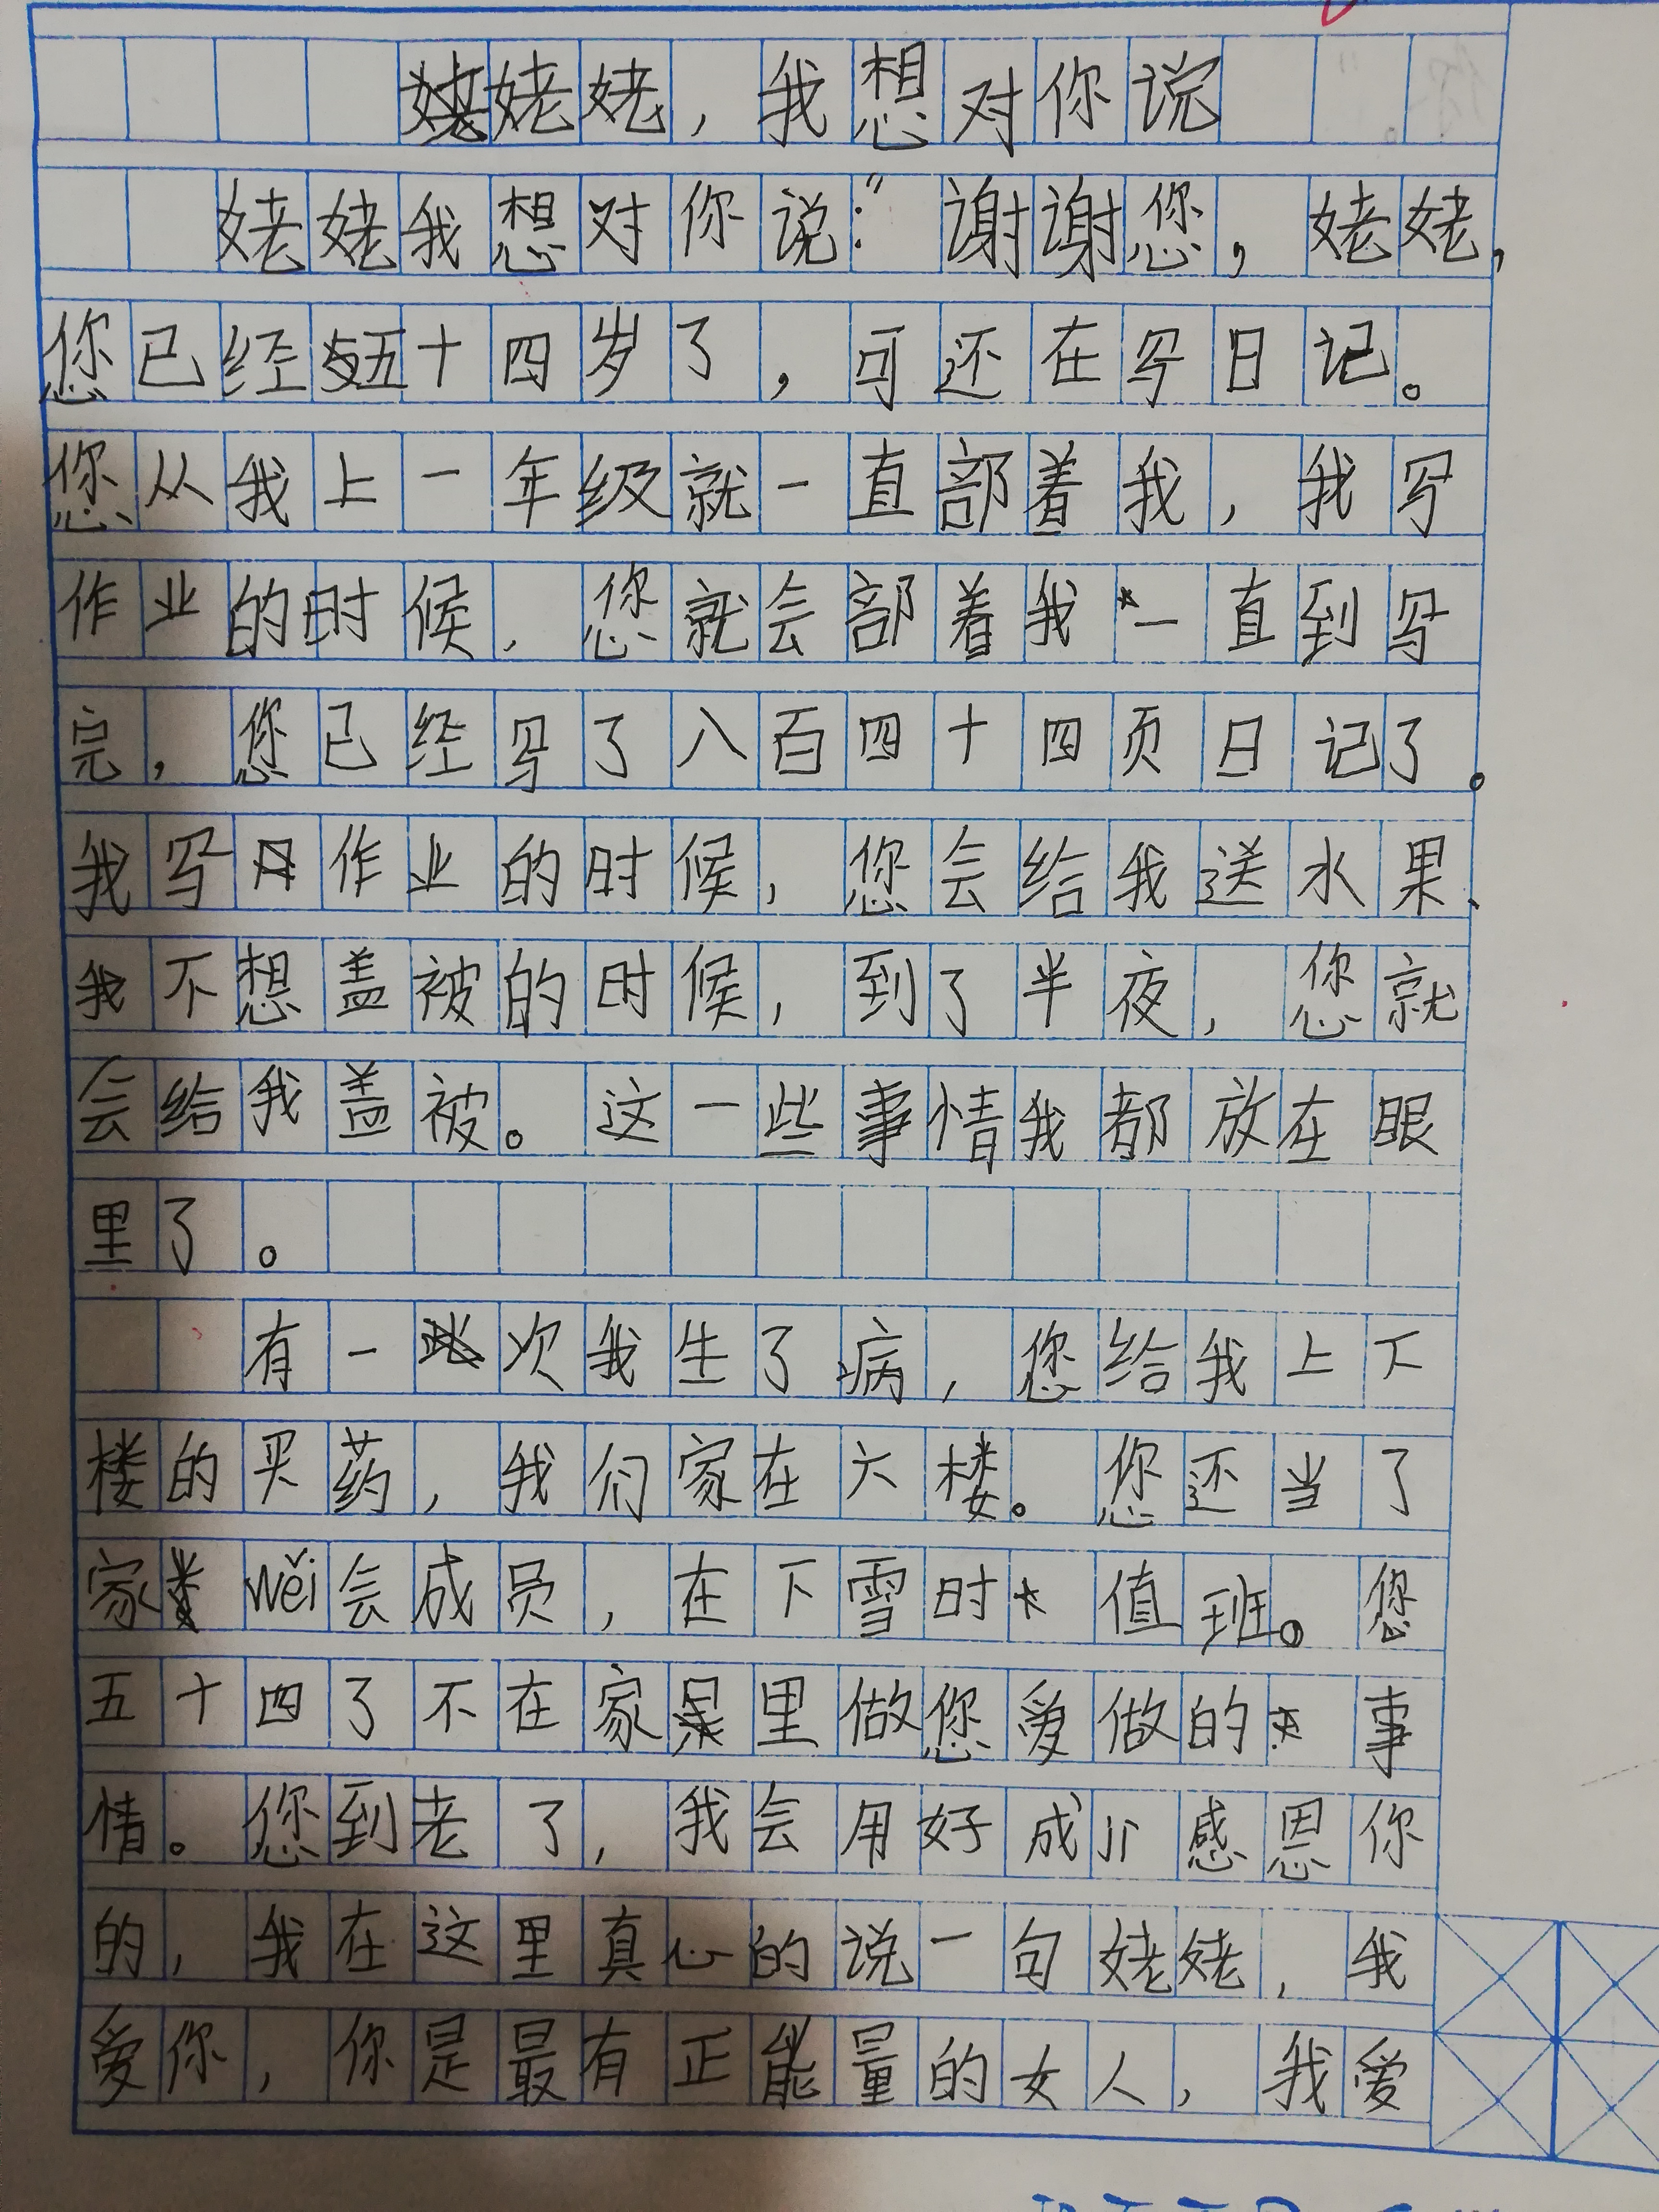 姥姥，我想对你说
姥姥我想对你说：“谢谢您，姥姥，
您已经五十四岁了，可还在写日记。
您从我上一年级就一直部着我，我写
作业的时候，您就会部着我一直到写
完，您已经写了八百四十四页日记了。
我写作业的时候，您会给我送水果、
我不想盖被的时候，到了半夜，您就
会给我盖被。这一些事情我都放在眼
里了。
有一次我生了病，您给我上下
楼的买药，我们家在六楼。您还当了
家wěi会成员，在下雪时值班。您
五十四了不在家里做您爱做的事
情。您到老了，我会用好成绩感恩你
的，我在这里真心的说一句姥姥，我
爱你，你是最有正能量的女人，我爱